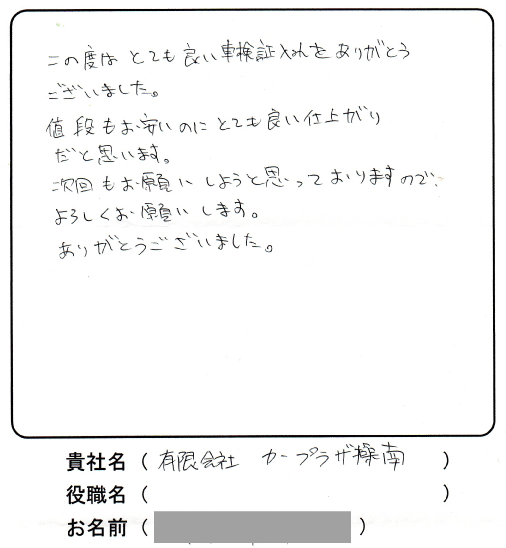 この度は とても 良い 車検証入れを ありがとう
ございました。
値段もお安いのに とても良い仕上がり
だと思います。
次回もお願いしようと思っておりますので、
よろしくお願いします。
ありがとうございました。
貴社名 ( 有限会社 カープラザ操南 )
役職名 ( )
お名前 ( )